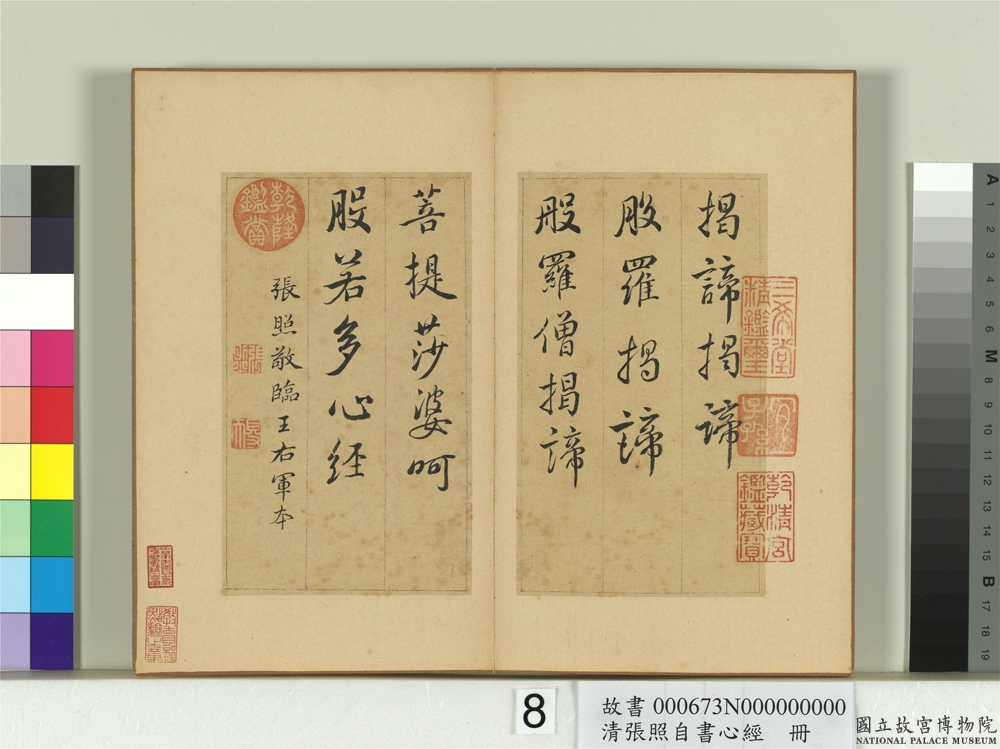 三希堂精鑑璽
宜子孫
乾清宮鑑藏寶
揭諦揭諦
般羅揭諦
般羅僧揭諦
菩提莎婆呵
般若多心経
張照敬臨王右軍本
乾隆鑑賞
張照
教育部點驗之章
A 1 2 3 4 5 6 M 8 9 10 11 12 13 14 15 B 17 18 19
8
故書 000673N000000000
清張照自書心經 冊
國立故宮博物院
NATIONAL PALACE MUSEUM